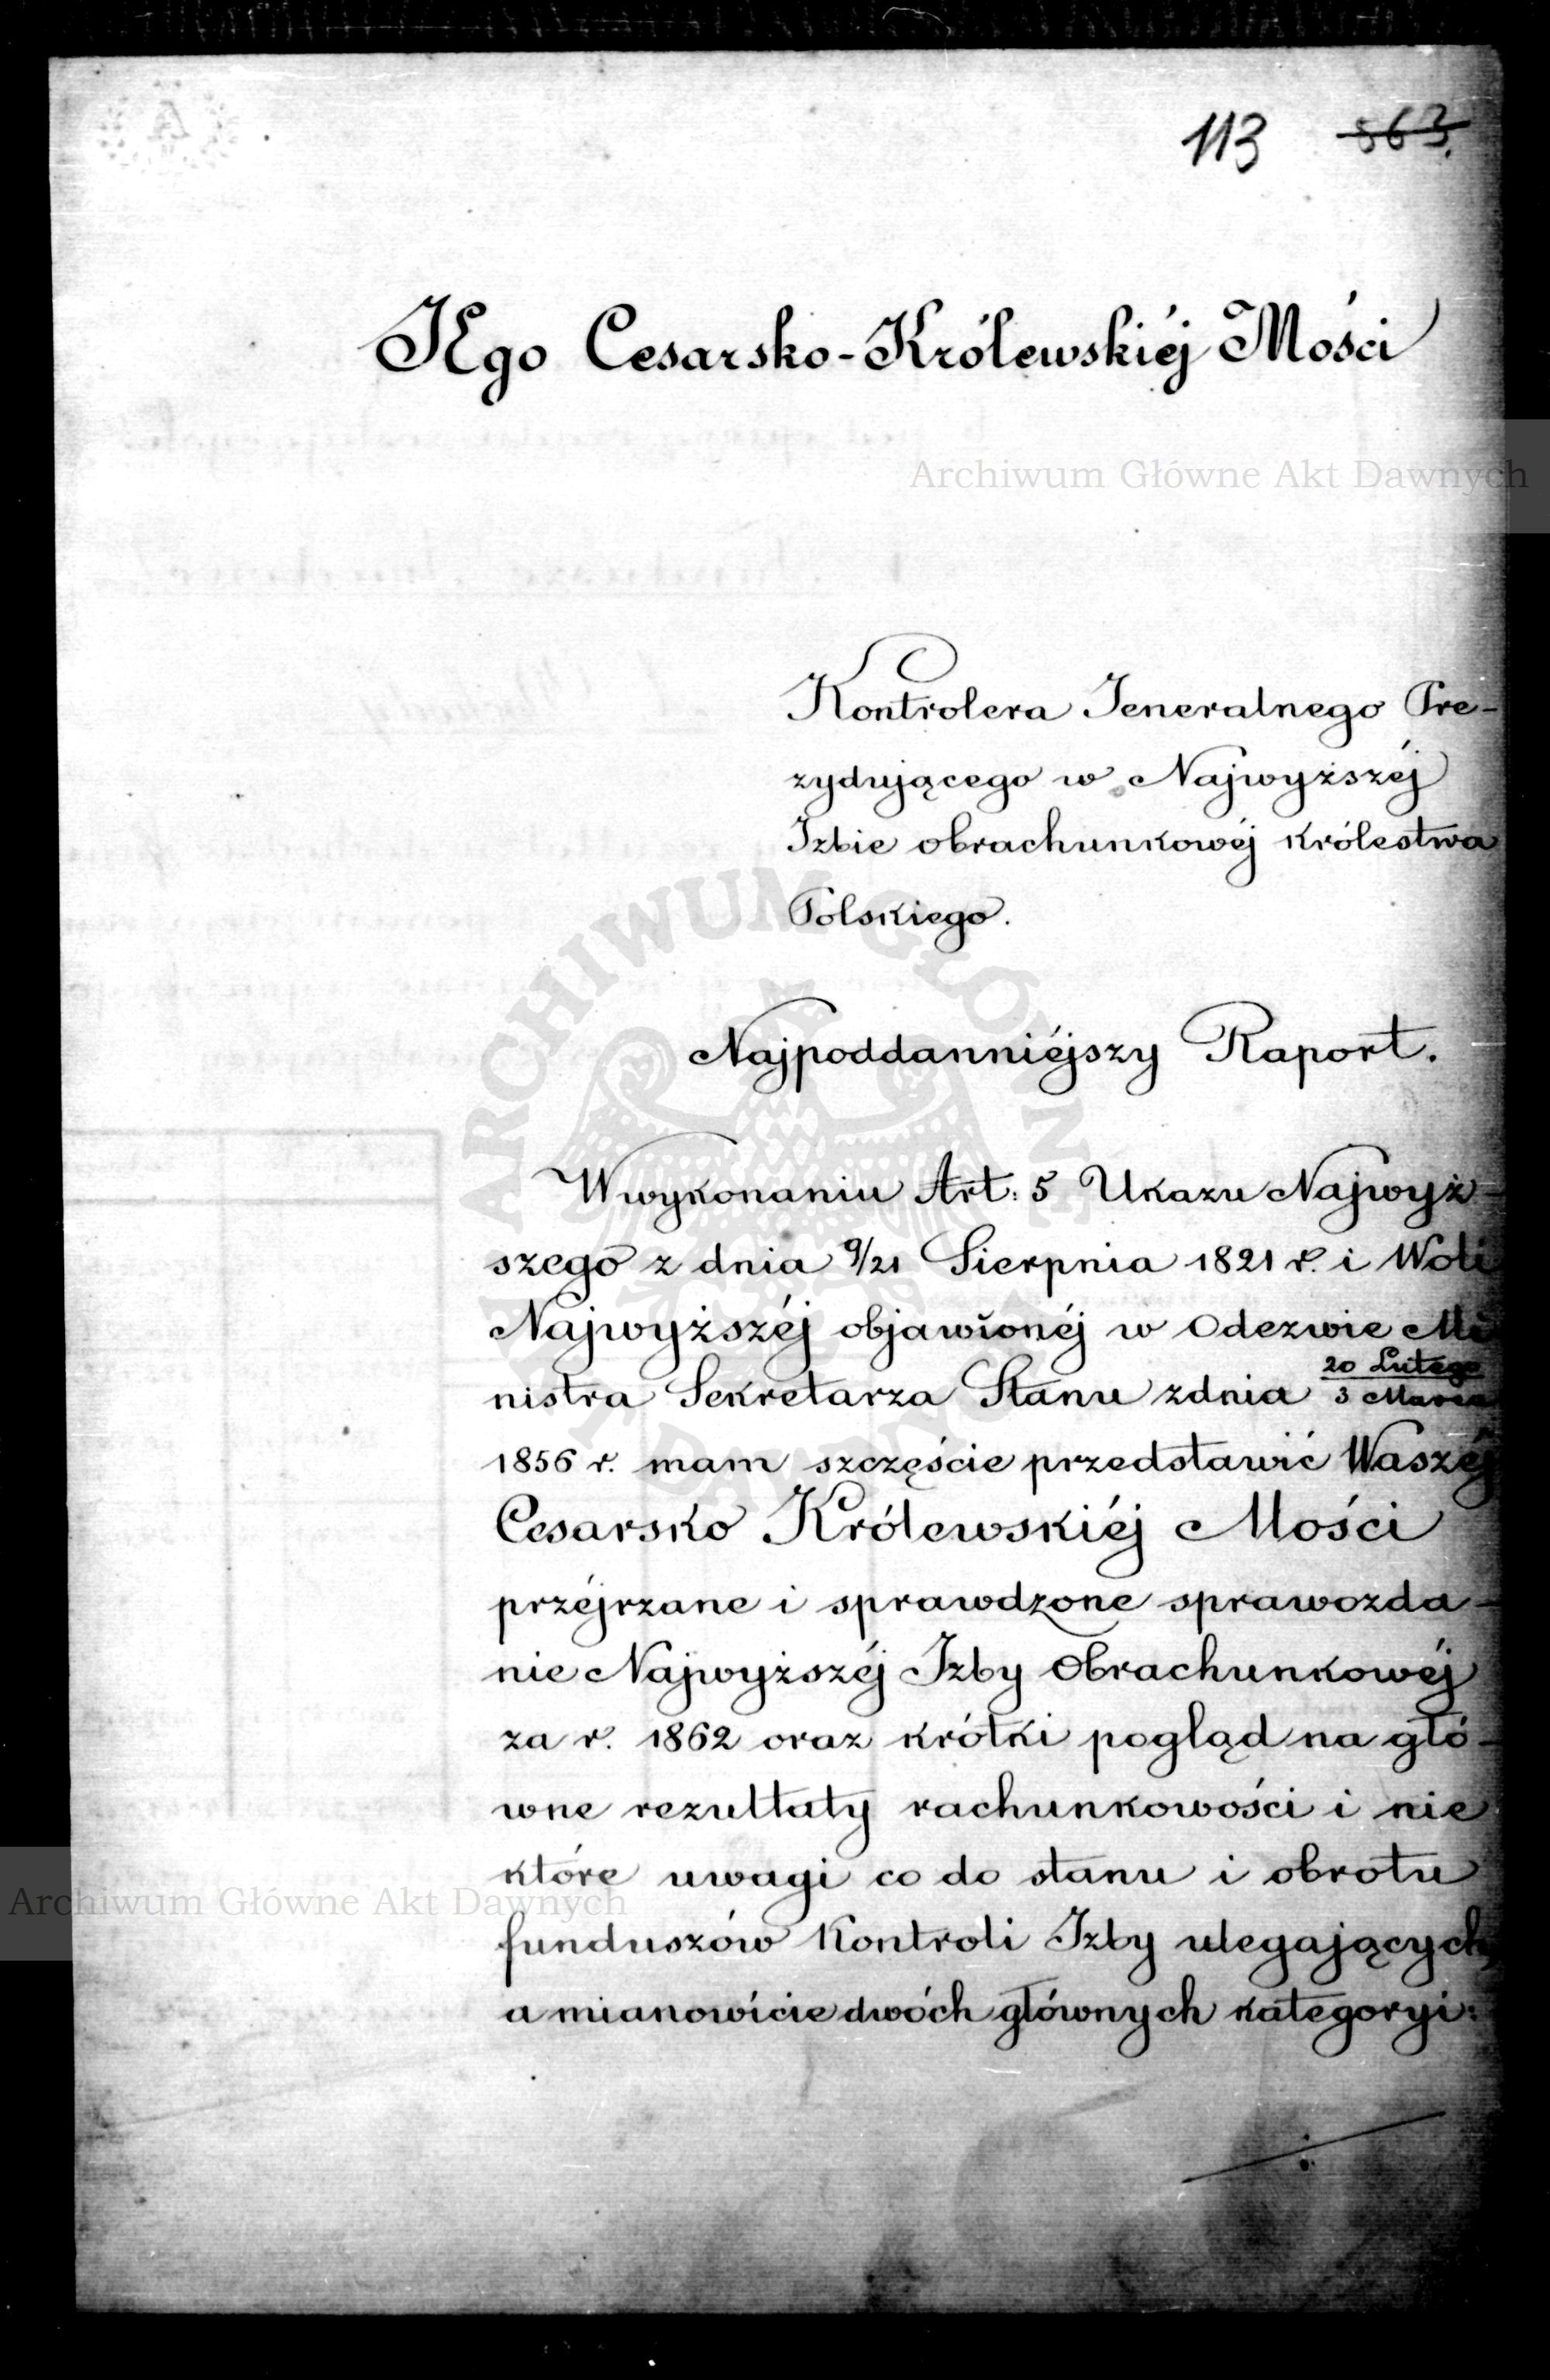 113 563.
JEgo Cesarsko-Królewskiéj Mości
Archiwum Główne Akt Dawnych
Kontrolera Jeneralnego Pre-
zydującego w Najwyższéj
Izbie obrachunkowéj Królestwa
Polskiego.
Najpoddanniéjszy Raport.
W wykonaniu Art: 5 Ukazu Najwyż-
szego z dnia 9/21 Sierpnia 1821 r. i Woli
Najwyższéj objawionéj w Odezwie Mi
nistra Sekretarza Stanu z dnia 20 Lutego / 3 Marca
1856 r. mam szczęście przedstawić Waszéj
Cesarsko Królewskiéj Mości
przéjrzane i sprawdzone sprawozda-
nie Najwyższéj Izby Obrachunkowéj
za r. 1862 oraz krótki pogląd na głó-
wne rezultaty rachunkowości i nie
które uwagi co do stanu i obrotu
Archiwum Główne Akt Dawnych
funduszów Kontroli Izby ulegających
a mianowicie dwóch głównych kategoryi:
ARCHIWUM GŁÓWNE AKT DAWNYCH